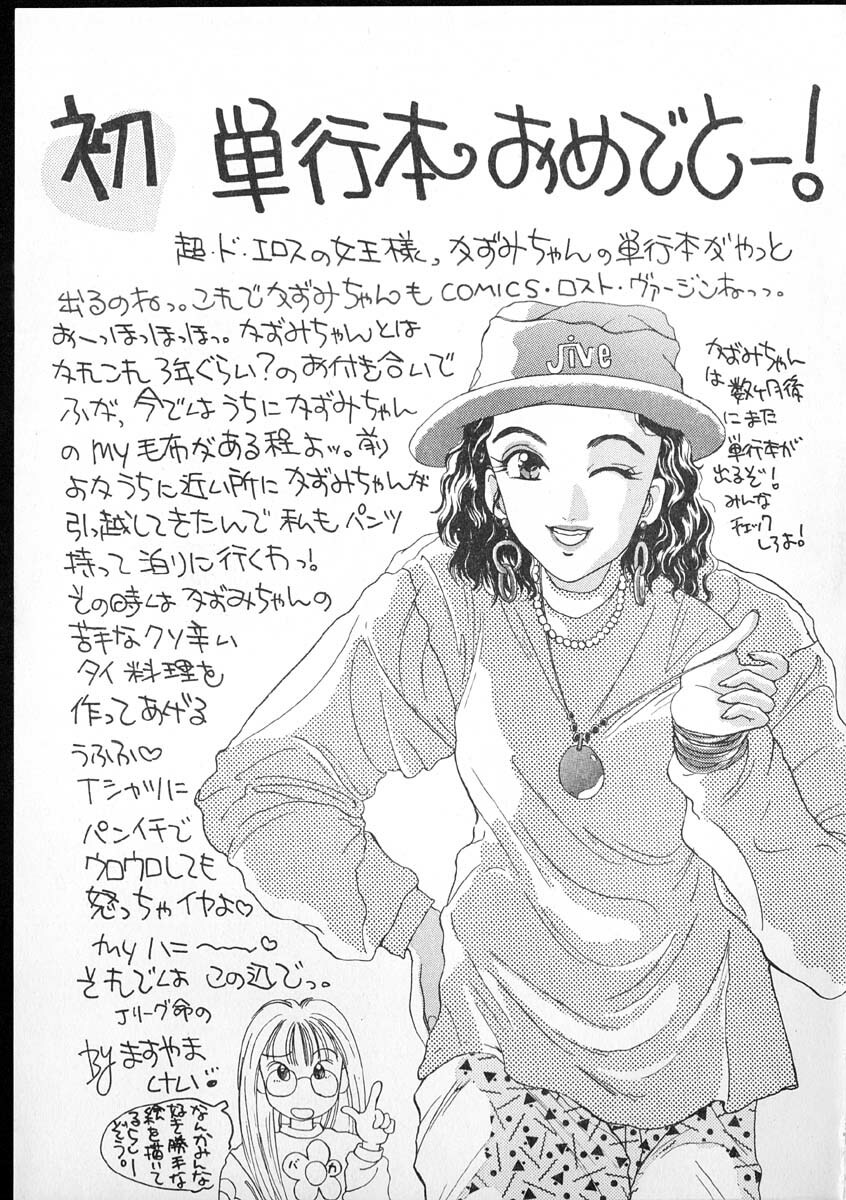 初 単行本おめでとー!
超・ド・エロスの女王様っ、かずみちゃんの単行本がやっと
出るのねっ。これでかずみちゃんも COMICS・ロスト・ヴァージンねっっ。
おーっほっほっほっ。かずみちゃんとは
かれこれ3年ぐらい?のお付き合いで
ふが、今ではうちにかずみちゃん
のmy毛布がある程よッ。前
よかうちに近い所にかずみちゃんが
引っ越してきたんで私もパンツ
持って泊りに行くわっ!
その時はかずみちゃんの
苦手なクソ辛い
タイ料理を
作ってあげる
うふふ♡
Tシャツに
パンイチで
ウロウロしても
怒っちゃイヤよ♡
myハニ〜〜♡
それでは この辺でっ。
Jリーグ命の
By ますやま
けい
jive
かずみちゃん
は数ヶ月後
にまた
単行本が
出るぞ!
みんな
チェック
しろよ!
なんかみんな
好き勝手な
絵を描いて
るらしー
ぞう。
バカ